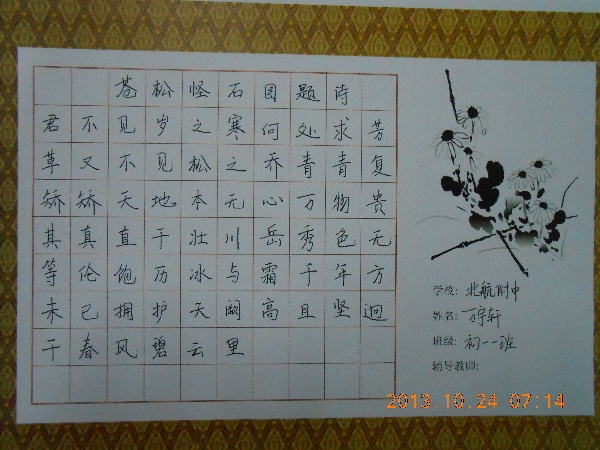 苍松怪石图题诗
君不见岁之寒何处求芳
草又不见松之乔青青复
矫矫天地本无心万物贵
其真直干壮川岳秀色无
等伦饱历冰与霜千年方
未已拥护天阙高且坚迥
干春风碧云里
学校: 北航附中
姓名: 万宇轩
班级: 初一一班
辅导教师:
2013.10.24 07:14